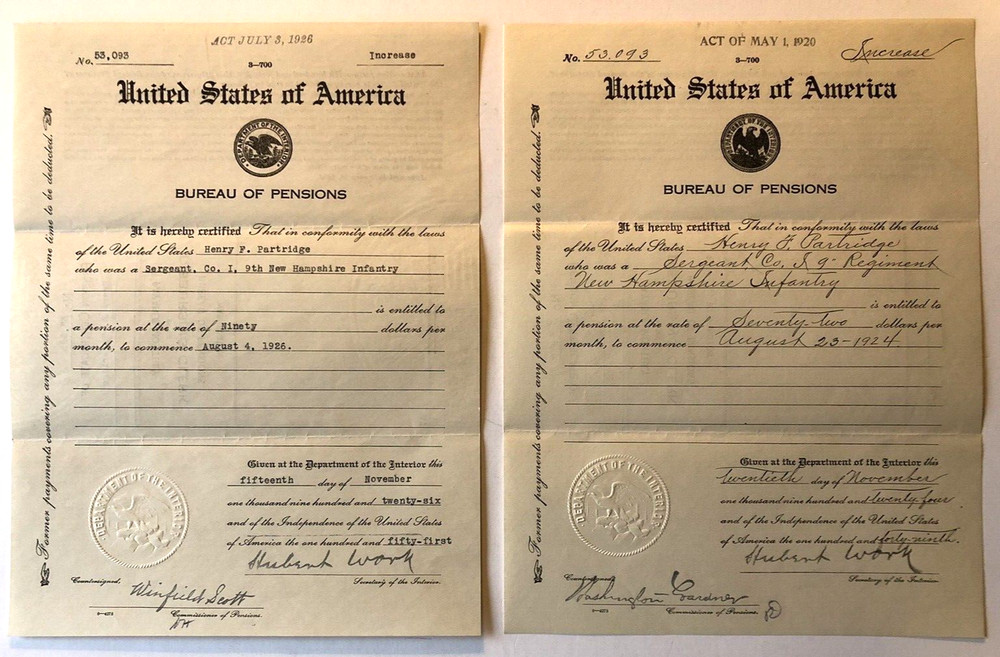 ACT JULY 3, 1926
No. 53,093
3—700
Increase
United States of America
DEPARTMENT OF THE INTERIOR
BUREAU OF PENSIONS
It is hereby certified That in conformity with the laws
of the United States Henry F. Partridge
who was a Sergeant, Co. I, 9th New Hampshire Infantry
is entitled to
a pension at the rate of Ninety dollars per
month, to commence August 4, 1926.
Given at the Department of the Interior this
fifteenth day of November
one thousand nine hundred and twenty-six
and of the Independence of the United States
of America the one hundred and fifty-first
Hubert Work
Secretary of the Interior.
Countersigned,
Winfield Scott
Commissioner of Pensions.
DEPARTMENT OF THE INTERIOR
Former payments covering any portion of the same time to be deducted.
ACT OF MAY 1, 1920
No. 53.093
3—700
Increase
United States of America
DEPARTMENT OF THE INTERIOR
BUREAU OF PENSIONS
It is hereby certified That in conformity with the laws
of the United States Henry F. Partridge
who was a Sergeant Co. I 9" Regiment
New Hampshire Infantry
is entitled to
a pension at the rate of Seventy-two dollars per
month, to commence August 23-1924.
Given at the Department of the Interior this
twentieth day of November
one thousand nine hundred and twenty four
and of the Independence of the United States
of America the one hundred and forty-ninth.
Hubert Work
Secretary of the Interior.
Countersigned,
Washington Gardner
Commissioner of Pensions.
DEPARTMENT OF THE INTERIOR
Former payments covering any portion of the same time to be deducted.